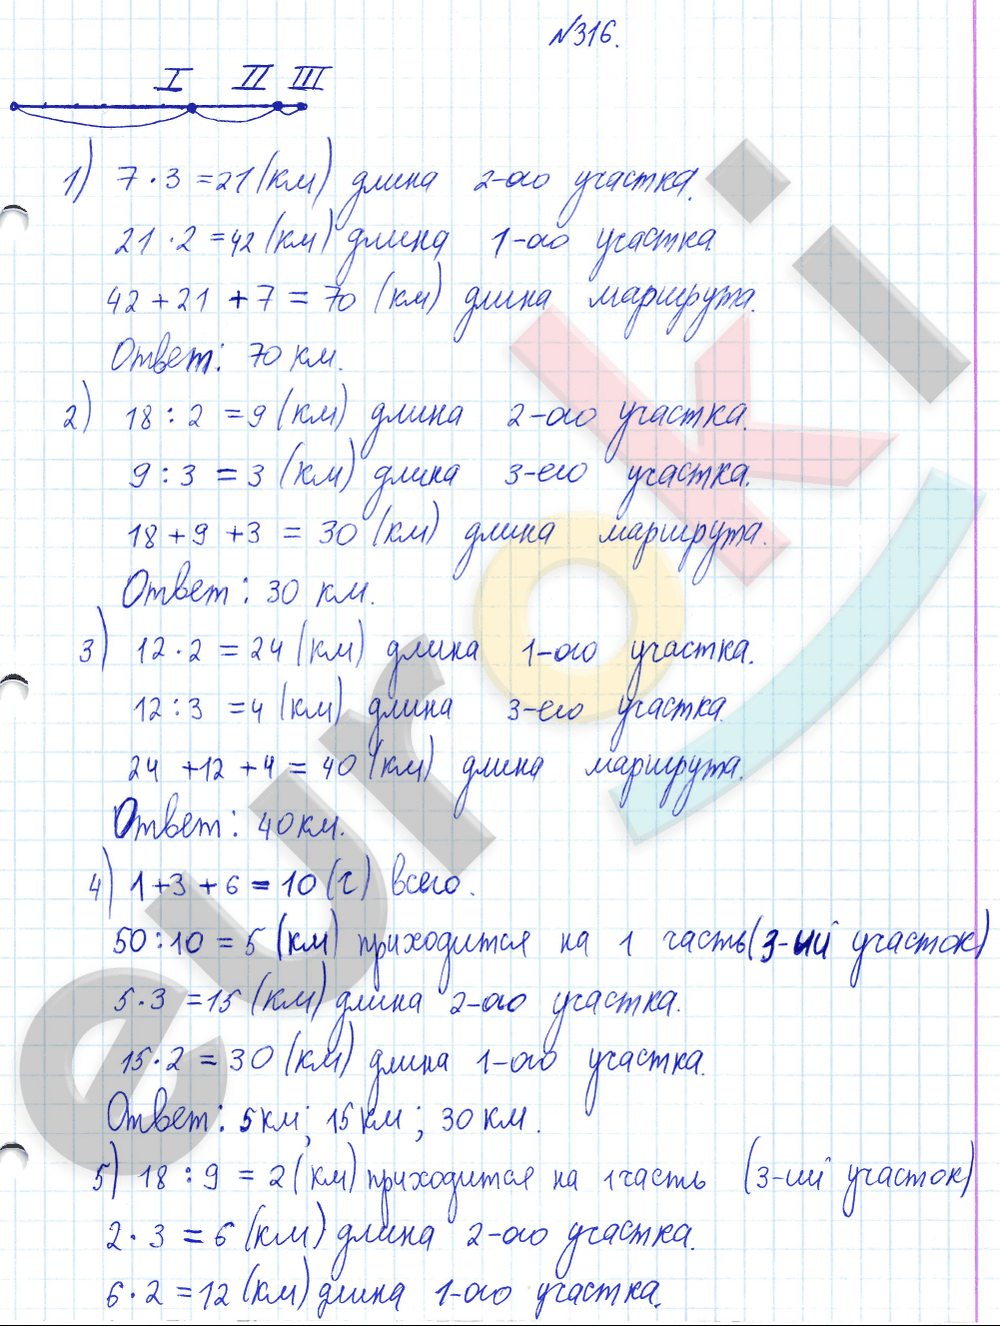 №316.
I II III
1) 7·3=21(км) длина 2-ого участка.
21·2=42(км) длина 1-ого участка
42+21+7=70 (км) длина маршрута.
Ответ: 70 км.
2) 18:2=9(км) длина 2-ого участка.
9:3=3 (км) длина 3-его участка.
18+9+3=30 (км) длина маршрута.
Ответ: 30 км.
3) 12·2=24(км) длина 1-ого участка.
12:3=4 (км) длина 3-его участка
24+12+4=40(км) длина маршрута.
Ответ: 40км.
4) 1+3+6=10(ч) всего.
50:10=5 (км) приходится на 1 часть(3-ий участок)
5·3=15(км) длина 2-ого участка.
15·2=30(км) длина 1-ого участка.
Ответ: 5км; 15км; 30км.
5) 18:9=2(км) приходится на 1часть (3-ий участок)
2·3=6(км) длина 2-ого участка.
6·2=12(км) длина 1-ого участка.
euroki